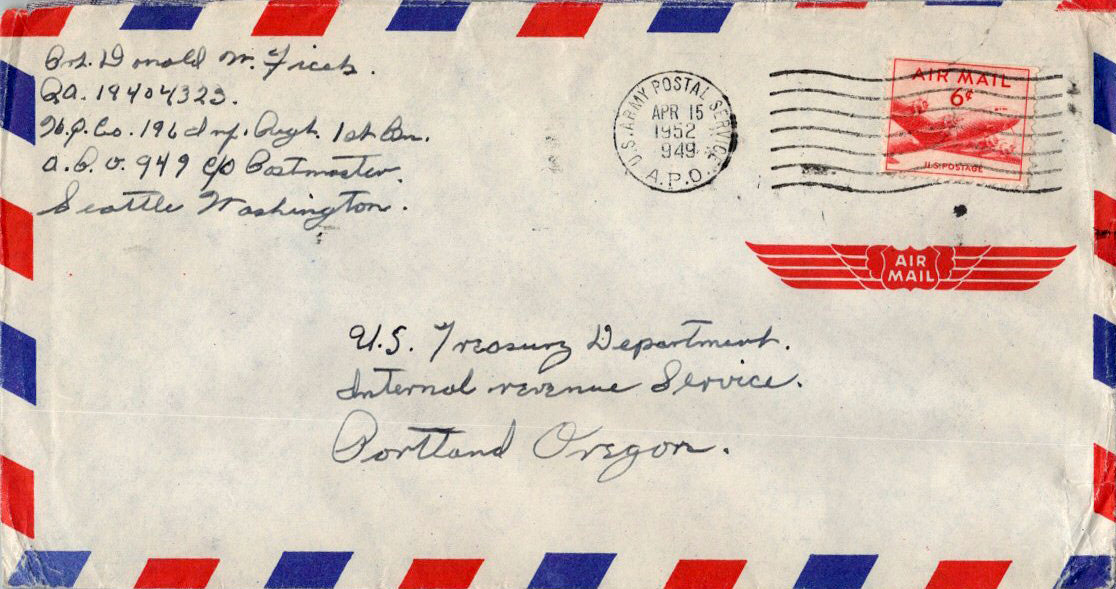 Pvt. Donald W. Ficek.
RA. 19404323.
H.Q. Co. 196 Inf. Regt. 1st Bn.
A.P.O. 949 c/o Postmaster.
Seattle Washington.
U.S. ARMY POSTAL SERVICE
APR 15
1952
949
A.P.O.
AIR MAIL
6¢
U.S. POSTAGE
AIR
MAIL
U.S. Treasury Department.
Internal revenue Service.
Portland Oregon.